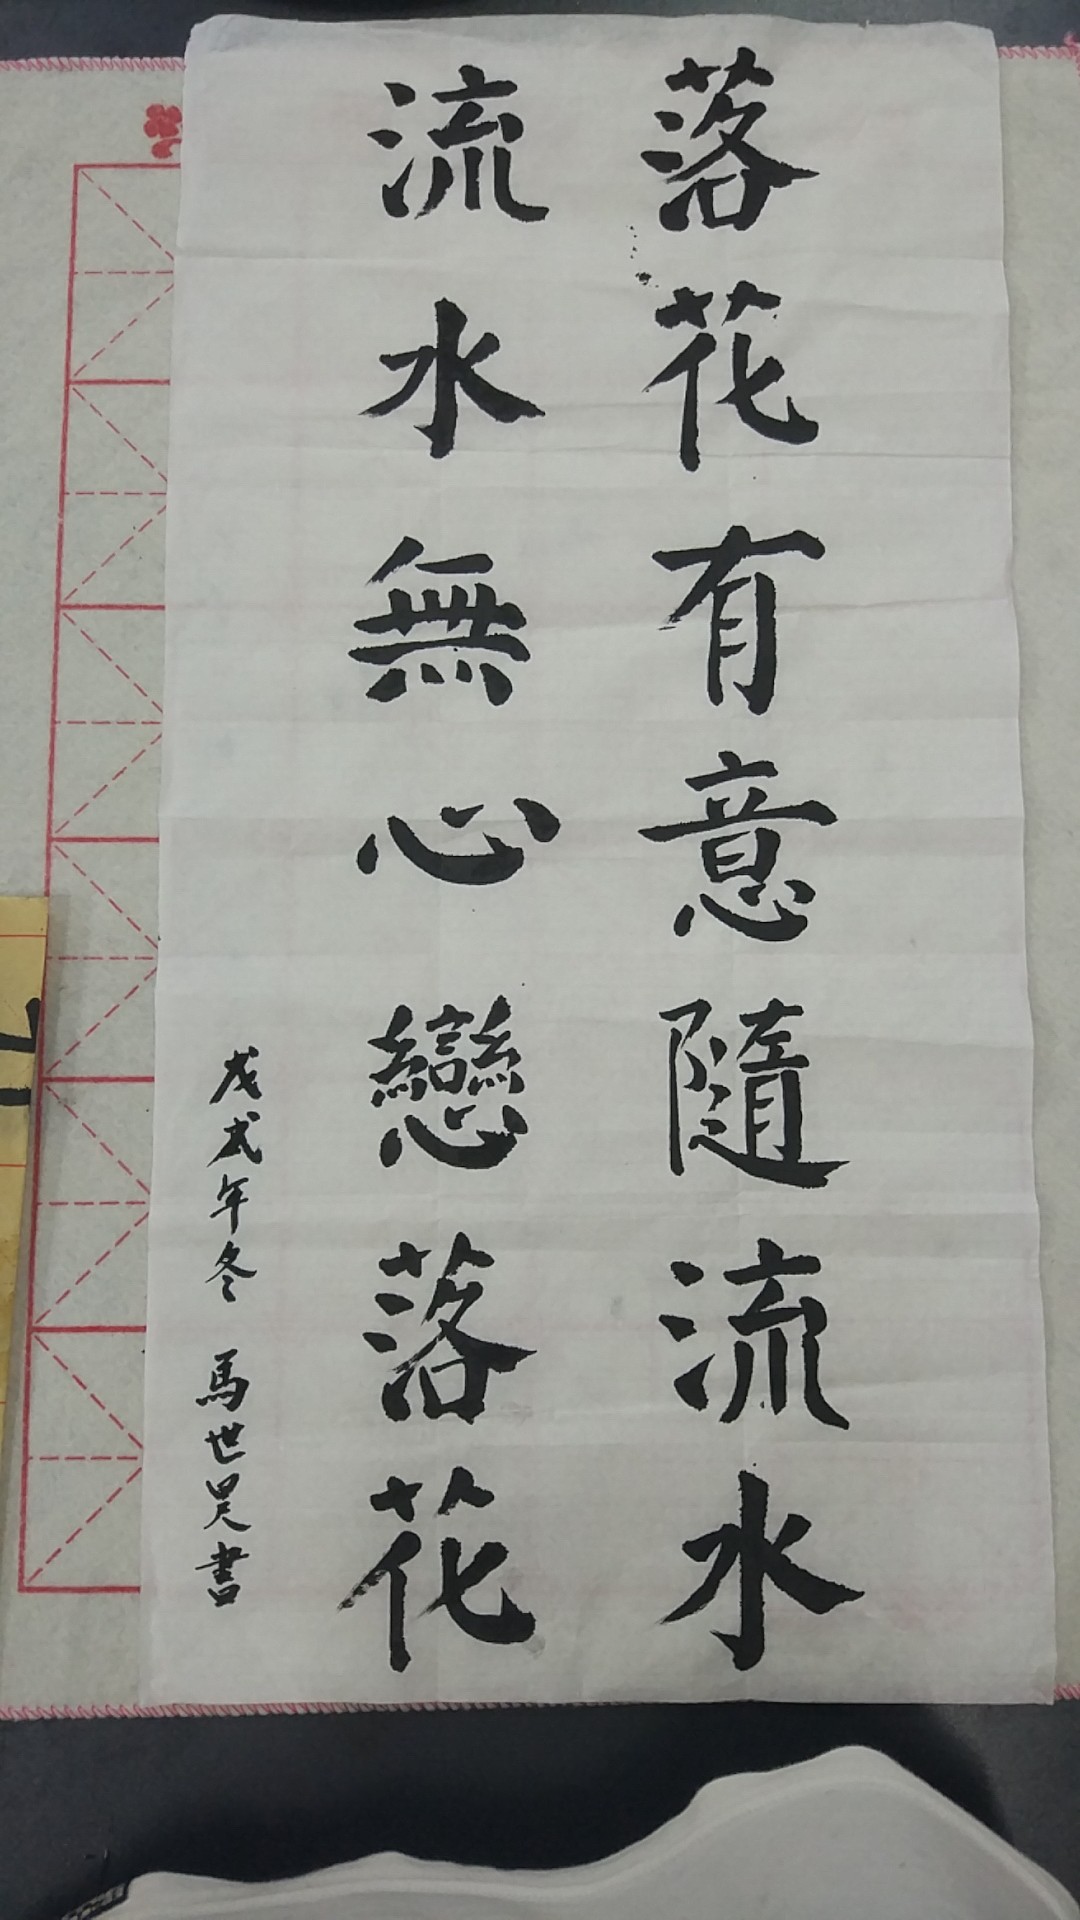 落花有意隨流水
流水無心戀落花
戊戌年冬 馬世昊書